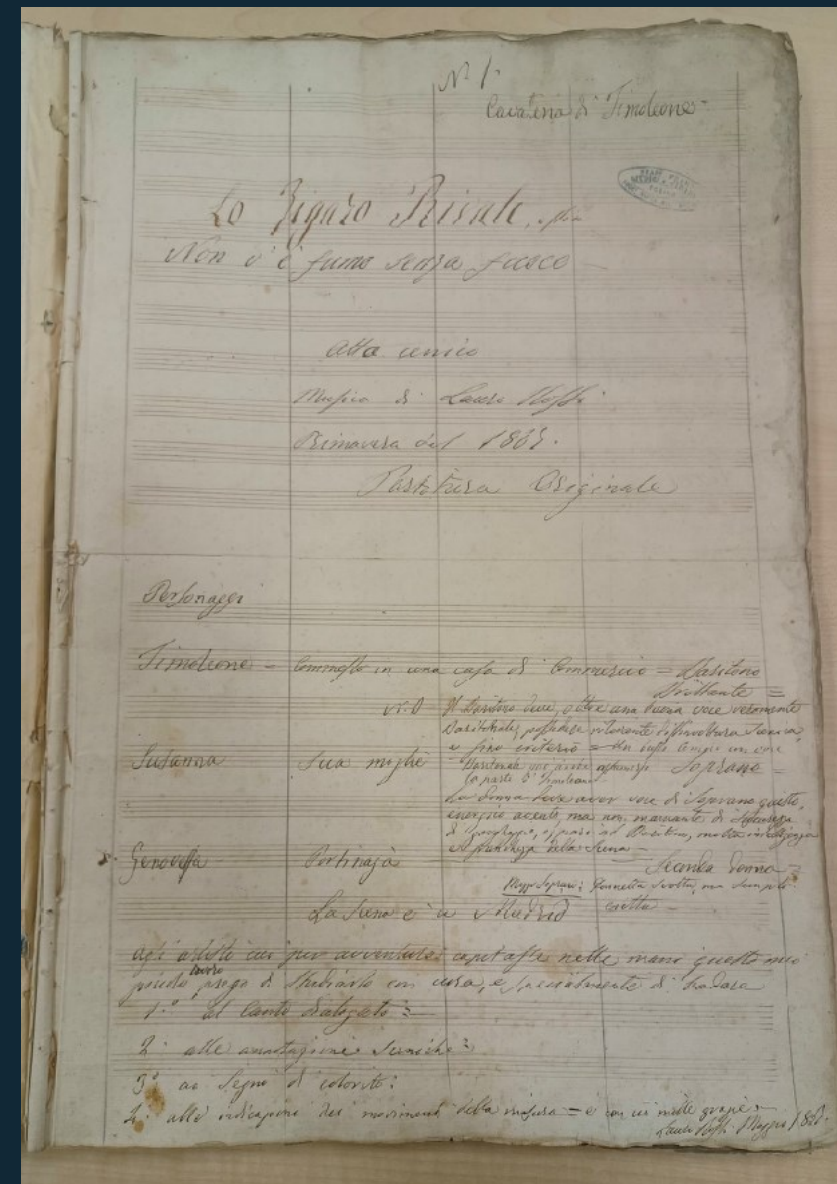 N. 1.
Cavatina di Timoleone
Lo Zigaro Rivale, ossia
Non v'è fumo senza fuoco
Atto unico
Musica di Lauro Rossi
Primavera del 186
Partitura Originale
Personaggi
Timoleone = Commesso in una casa di Commercio = Baritono
Brillante =
N.B. Il Baritono deve, oltre una buona voce veramente
Baritonale, possedere disinvoltura Scenica,
e fino criterio = Un Basso Comico con voce
Susanna Sua moglie Baritonale può anche Soprano =
la parte di Timoleone
La donna deve aver voce di Soprano
energico accento, ma non mancante di
di ed molta intelligenza
e della Scena
Genoveffa Portinaja Seconda donna =
Mezzo Soprano: Donnetta svelta, ma
La Scena è a Madrid
Agli artisti cui per avventura capitasse nelle mani questo mio
piccolo lavoro prego di studiarlo con cura, e specialmente di badare
1.° al Canto dialogato:
2.° alle annotazioni Sceniche:
3.° ai Segni di colorito:
4.° alle indicazioni dei movimenti della misura = e con ciò mille grazie
Lauro Rossi Maggio 186